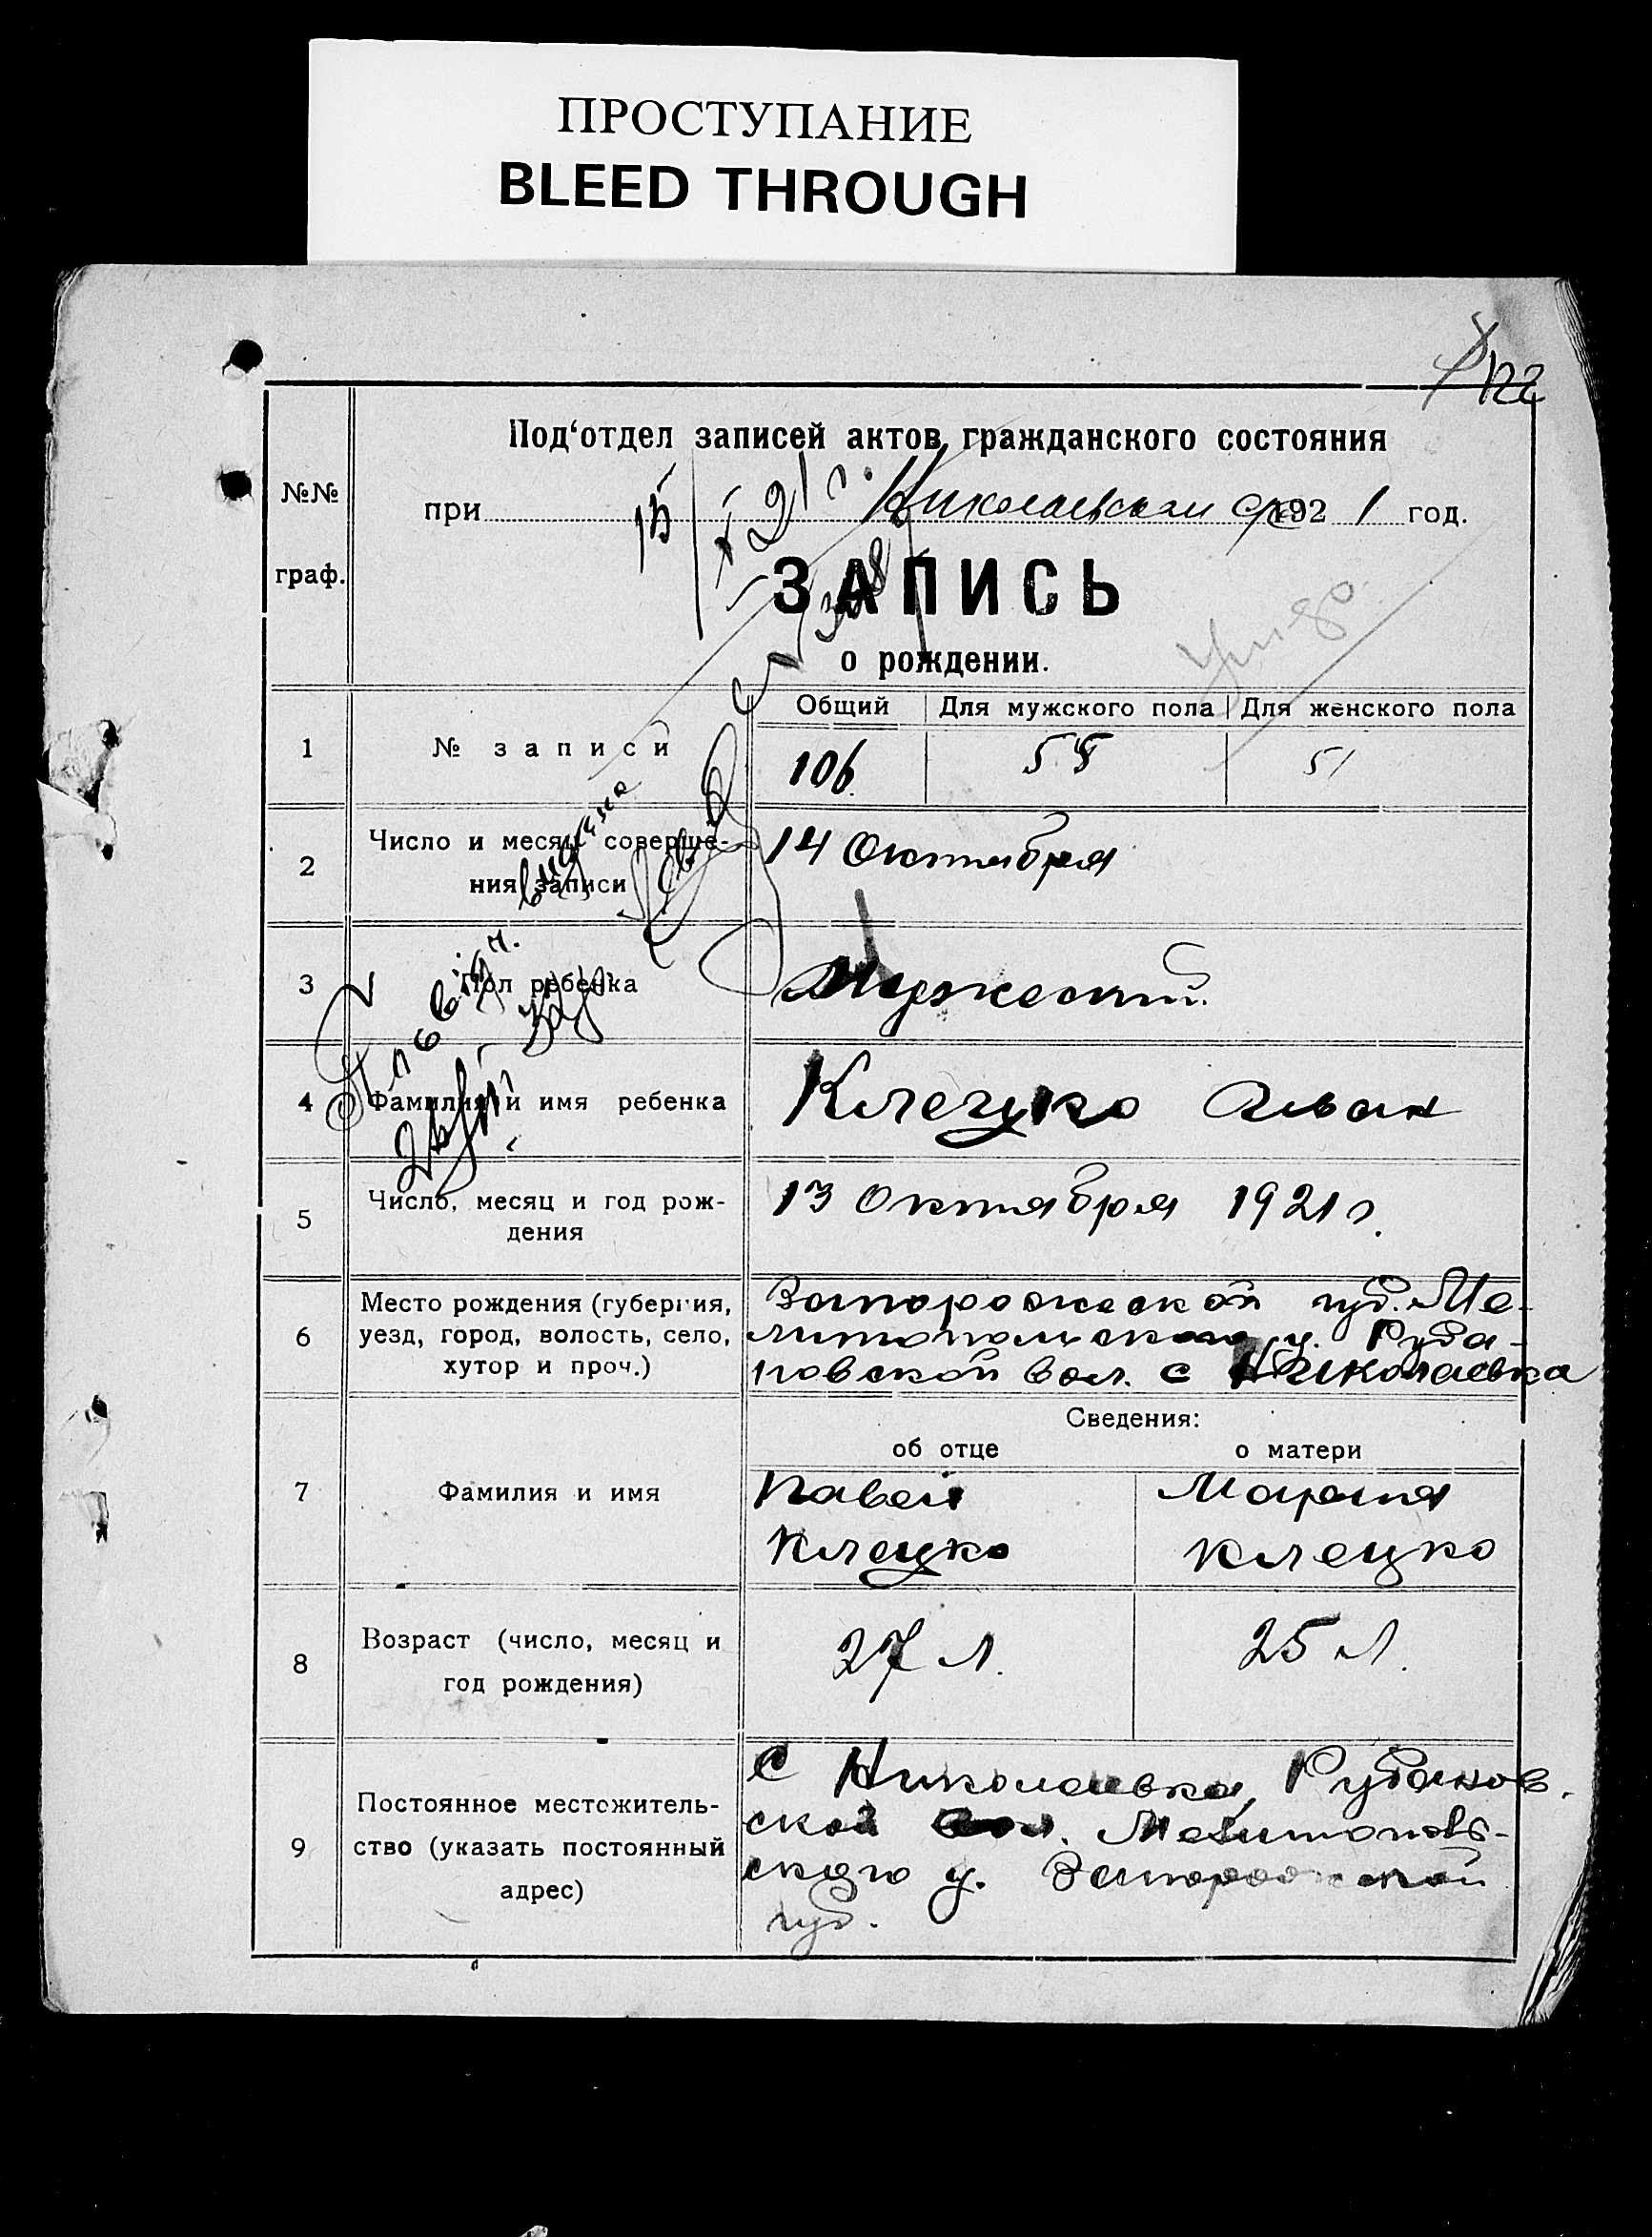 ПРОСТУПАНИЕ
BLEED THROUGH
122
Под‘отдел записей актов гражданского состояния
№№
граф.
при Николаевском 1921 год.
15/X 21 г.
ЗАПИСЬ
о рождении.
Общий Для мужского пола Для женского пола
1 № записи 106. 55 51
2 Число и месяц соверше-
ния записи
14 Октября
3 Пол ребенка Мужеский.
4 Фамилия и имя ребенка Клецко Иван
5 Число, месяц и год рож-
дения
13 Октября 1921 г.
6 Место рождения (губерния,
уезд, город, волость, село,
хутор и проч.)
Запорожской губ. Ме-
литопольского у. Руба-
новской вол. с Николаевка
Сведения:
об отце о матери
7 Фамилия и имя
Павел Мария
Клецко Клецко
8 Возраст (число, месяц и
год рождения)
27 л. 25 л.
9 Постоянное местожитель-
ство (указать постоянный
адрес)
С Николаевка, Рубанов-
ской вол. Мелитополь-
ского у. Запорожской
губ.